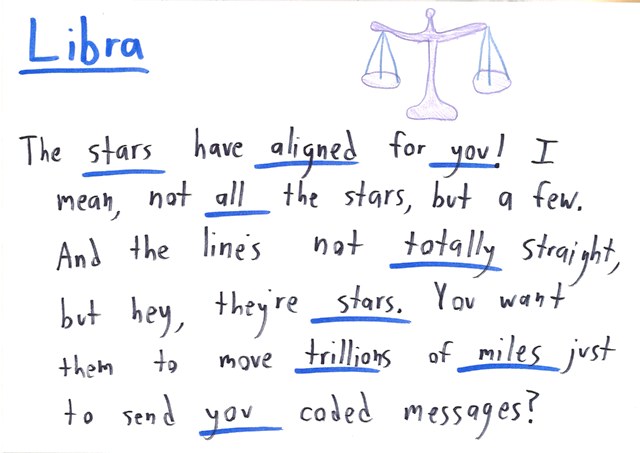 Libra
The stars have aligned for you! I
mean, not all the stars, but a few.
And the line's not totally straight,
but hey, they're stars. You want
them to move trillions of miles just
to send you coded messages?